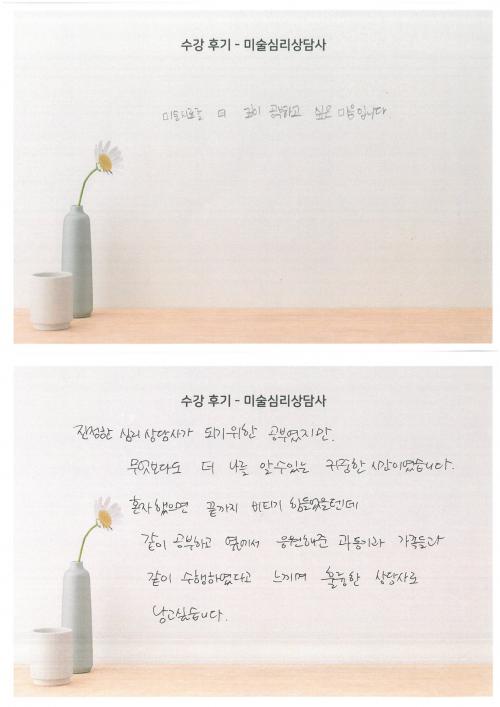 수강 후기 - 미술심리상담사
미술치료를 더 깊이 공부하고 싶은 마음입니다
수강 후기 - 미술심리상담사
진정한 심리상담사가 되기위한 공부였지만.
무엇보다도 더 나를 알수있는 귀중한 시간이였습니다.
혼자했으면 끝까지 버티기 힘들었을텐데
같이 공부하고 옆에서 응원해준 과동기와 가족들과
같이 수행하였다고 느끼며 훌륭한 상담사로
남고싶습니다.